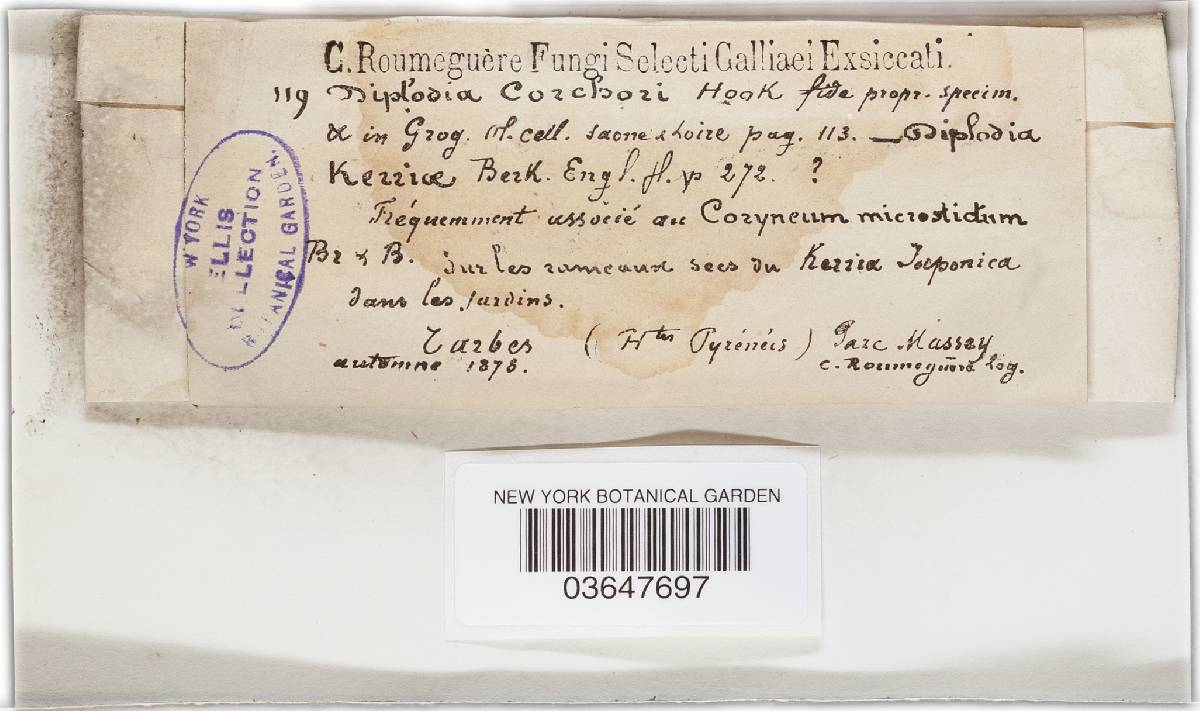 C. Roumeguère Fungi Selecti Galliaei Exsiccati.
119 Diplodia Corchori Hook fide propr. specim.
& in Grog. Pl. cell. saone & Loire pag. 113. — Diplodia
Kerriæ Berk. Engl. fl. p 272. ?
Fréquemment associé au Coryneum microstictum
Br & B. Sur les rameaux secs du Kerria Japonica
dans les jardins.
Tarbes (Htes Pyrénées) Parc Massey
automne 1878. C. Roumeguère leg.
W YORK
ELLIS
LLECTION
BOTANICAL GARDEN.
NEW YORK BOTANICAL GARDEN
03647697